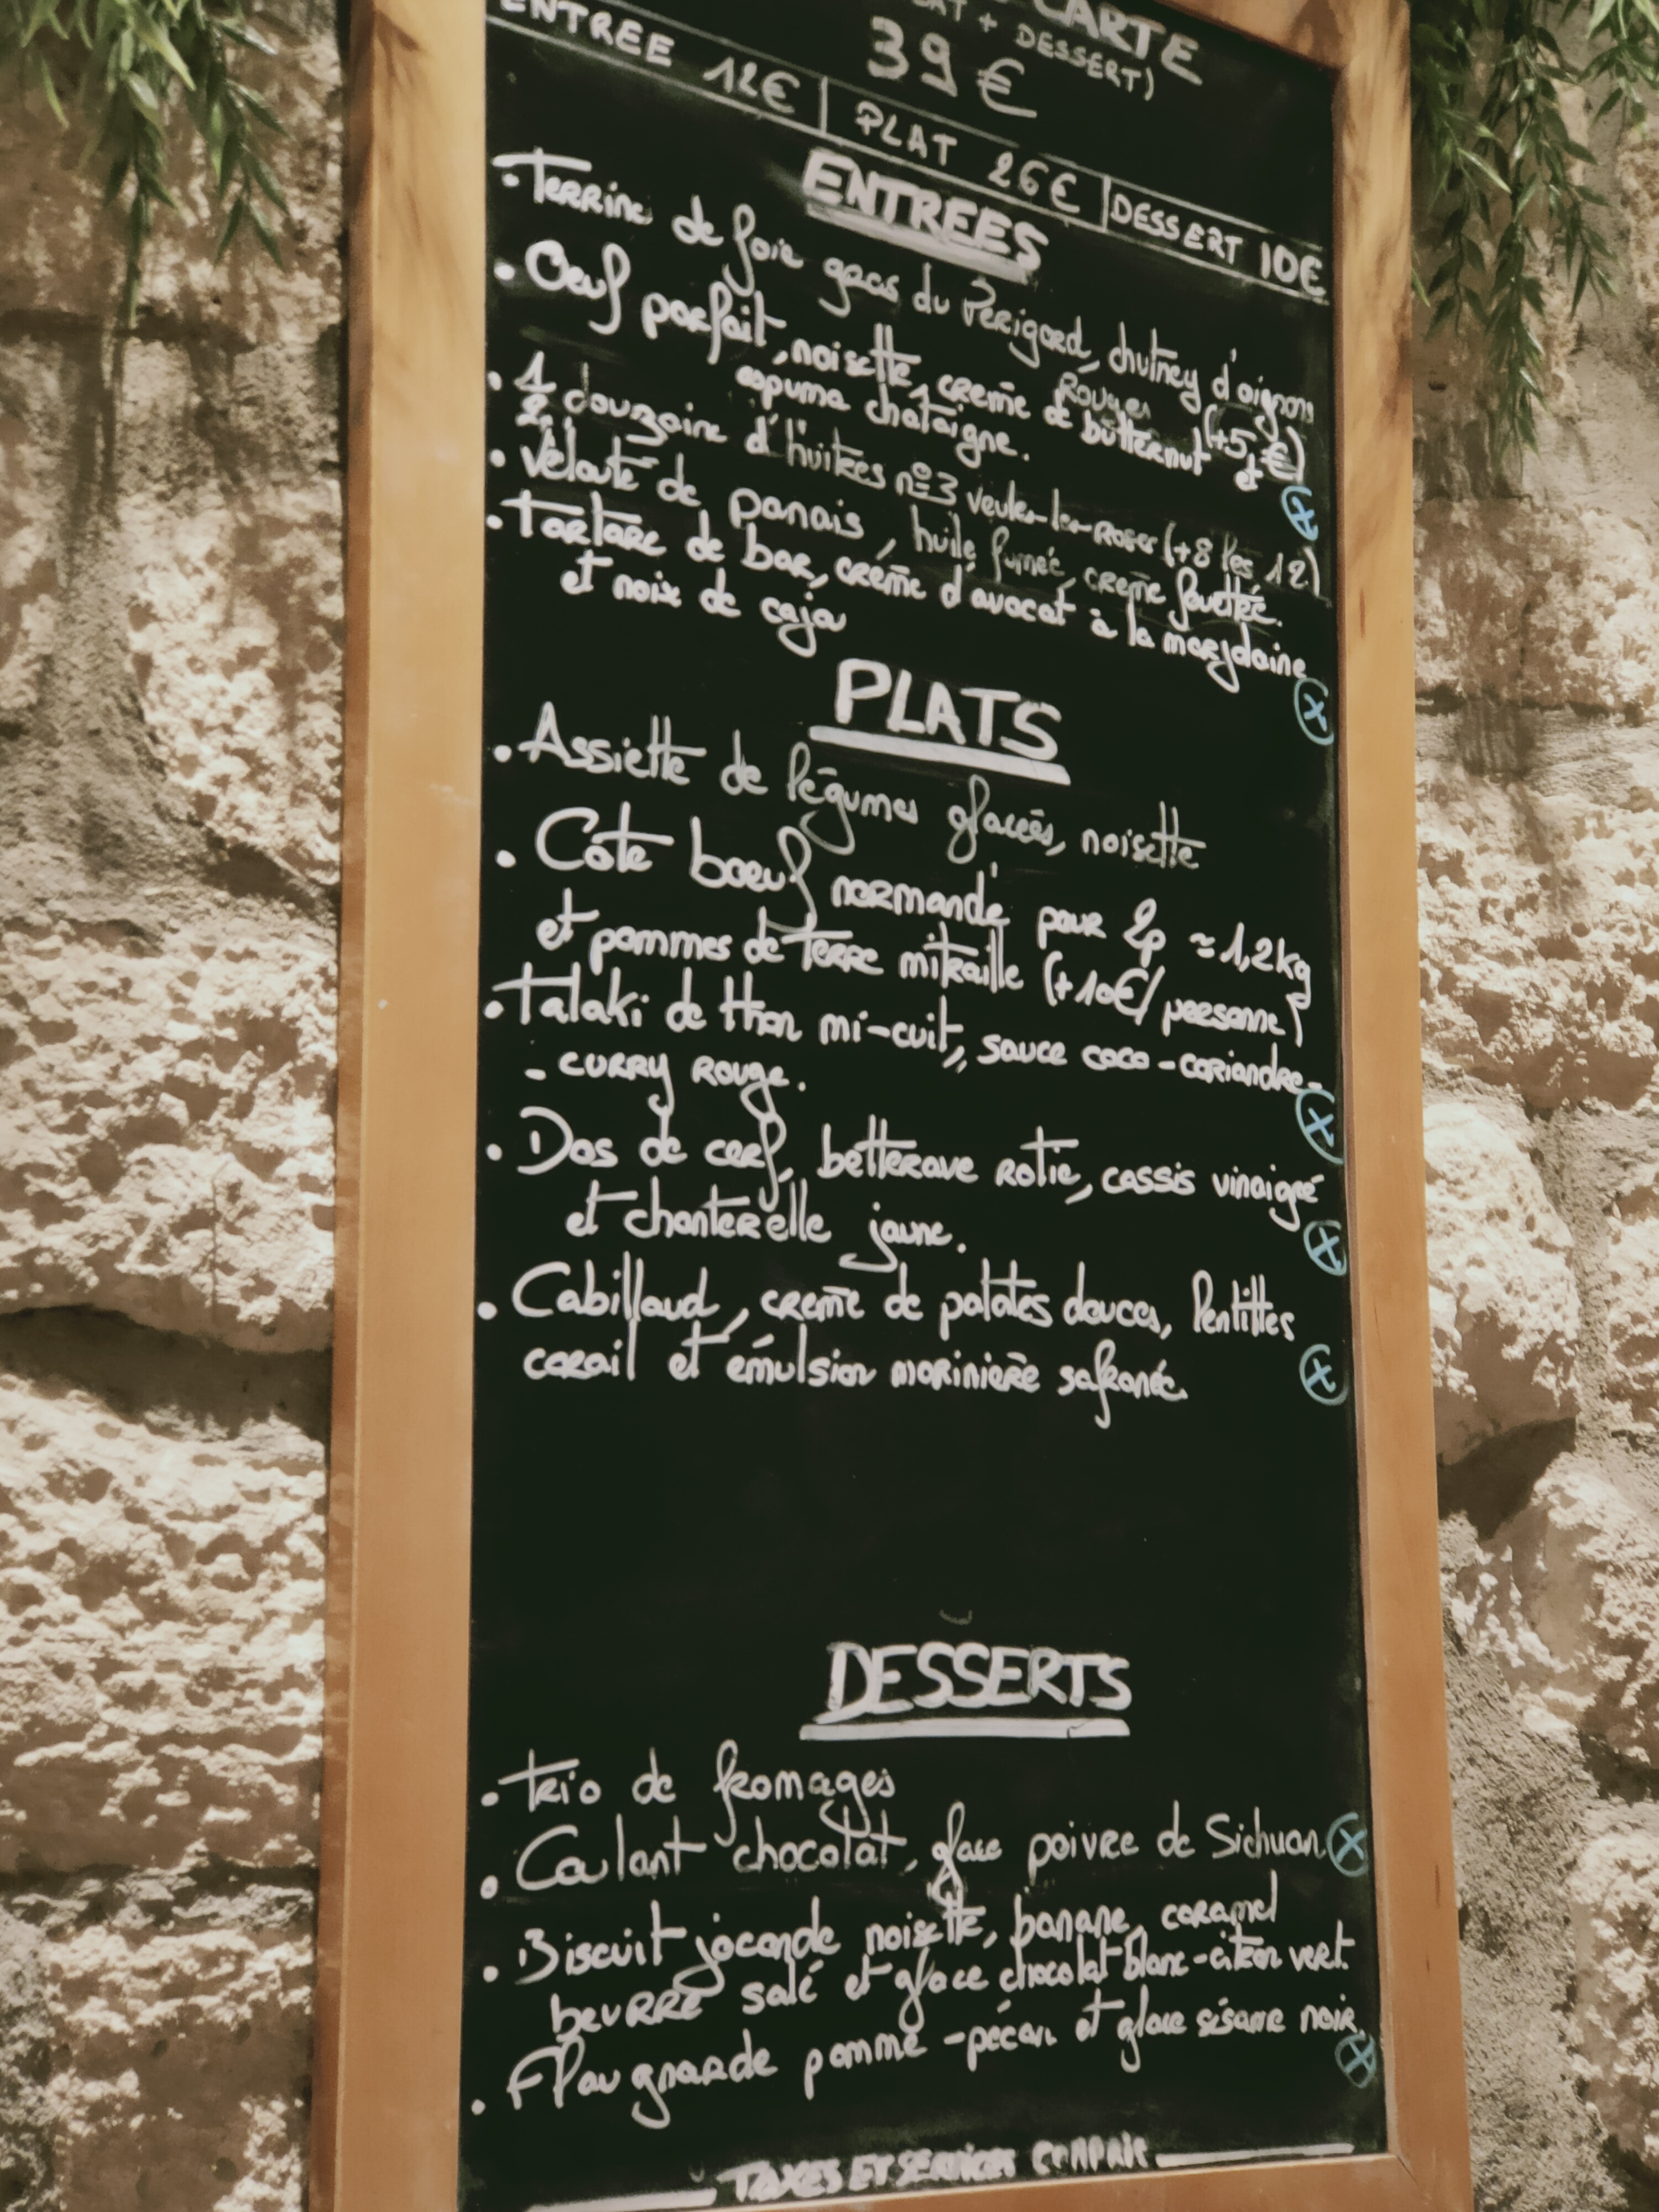 CARTE
+ DESSERT)
39 €
ENTREE 12€ | PLAT 26€ | DESSERT 10€
ENTREES
• Terrine de foie gras du Périgord, chutney d'oignons
Rouges (+5 €)
• Oeuf parfait, noisette, crème de butternut et
espuma chataigne. ⓧ
• 1/2 douzaine d'huitres n°3 veules-les-Roses (+8 les 12)
• Velouté de panais, huile fumée, crème fouettée.
• Tartare de bar, crème d'avocat à la
et noix de cajou ⓧ
PLATS
• Assiette de légumes glacées, noisette
• Côte boeuf normande pour 2p ≈ 1,2kg
et pommes de terre mitraille (+10€/personne)
• Tataki de thon mi-cuit, sauce coco-coriandre-
- curry rouge. ⓧ
• Dos de cerf, betterave rotie, cassis vinaigré
et chanterelle jaune. ⓧ
• Cabillaud, crème de patates douces, lentilles
corail et émulsion marinière safranée. ⓧ
DESSERTS
• Trio de fromages
• Coulant chocolat, glace poivre de Sichuan ⓧ
• Biscuit joconde noisette, banane, caramel
beurre salé et glace chocolat blanc-citron vert.
• Flaugnarde pomme-pécan et glace sésame noir. ⓧ
TAXES ET SERVICES COMPRIS